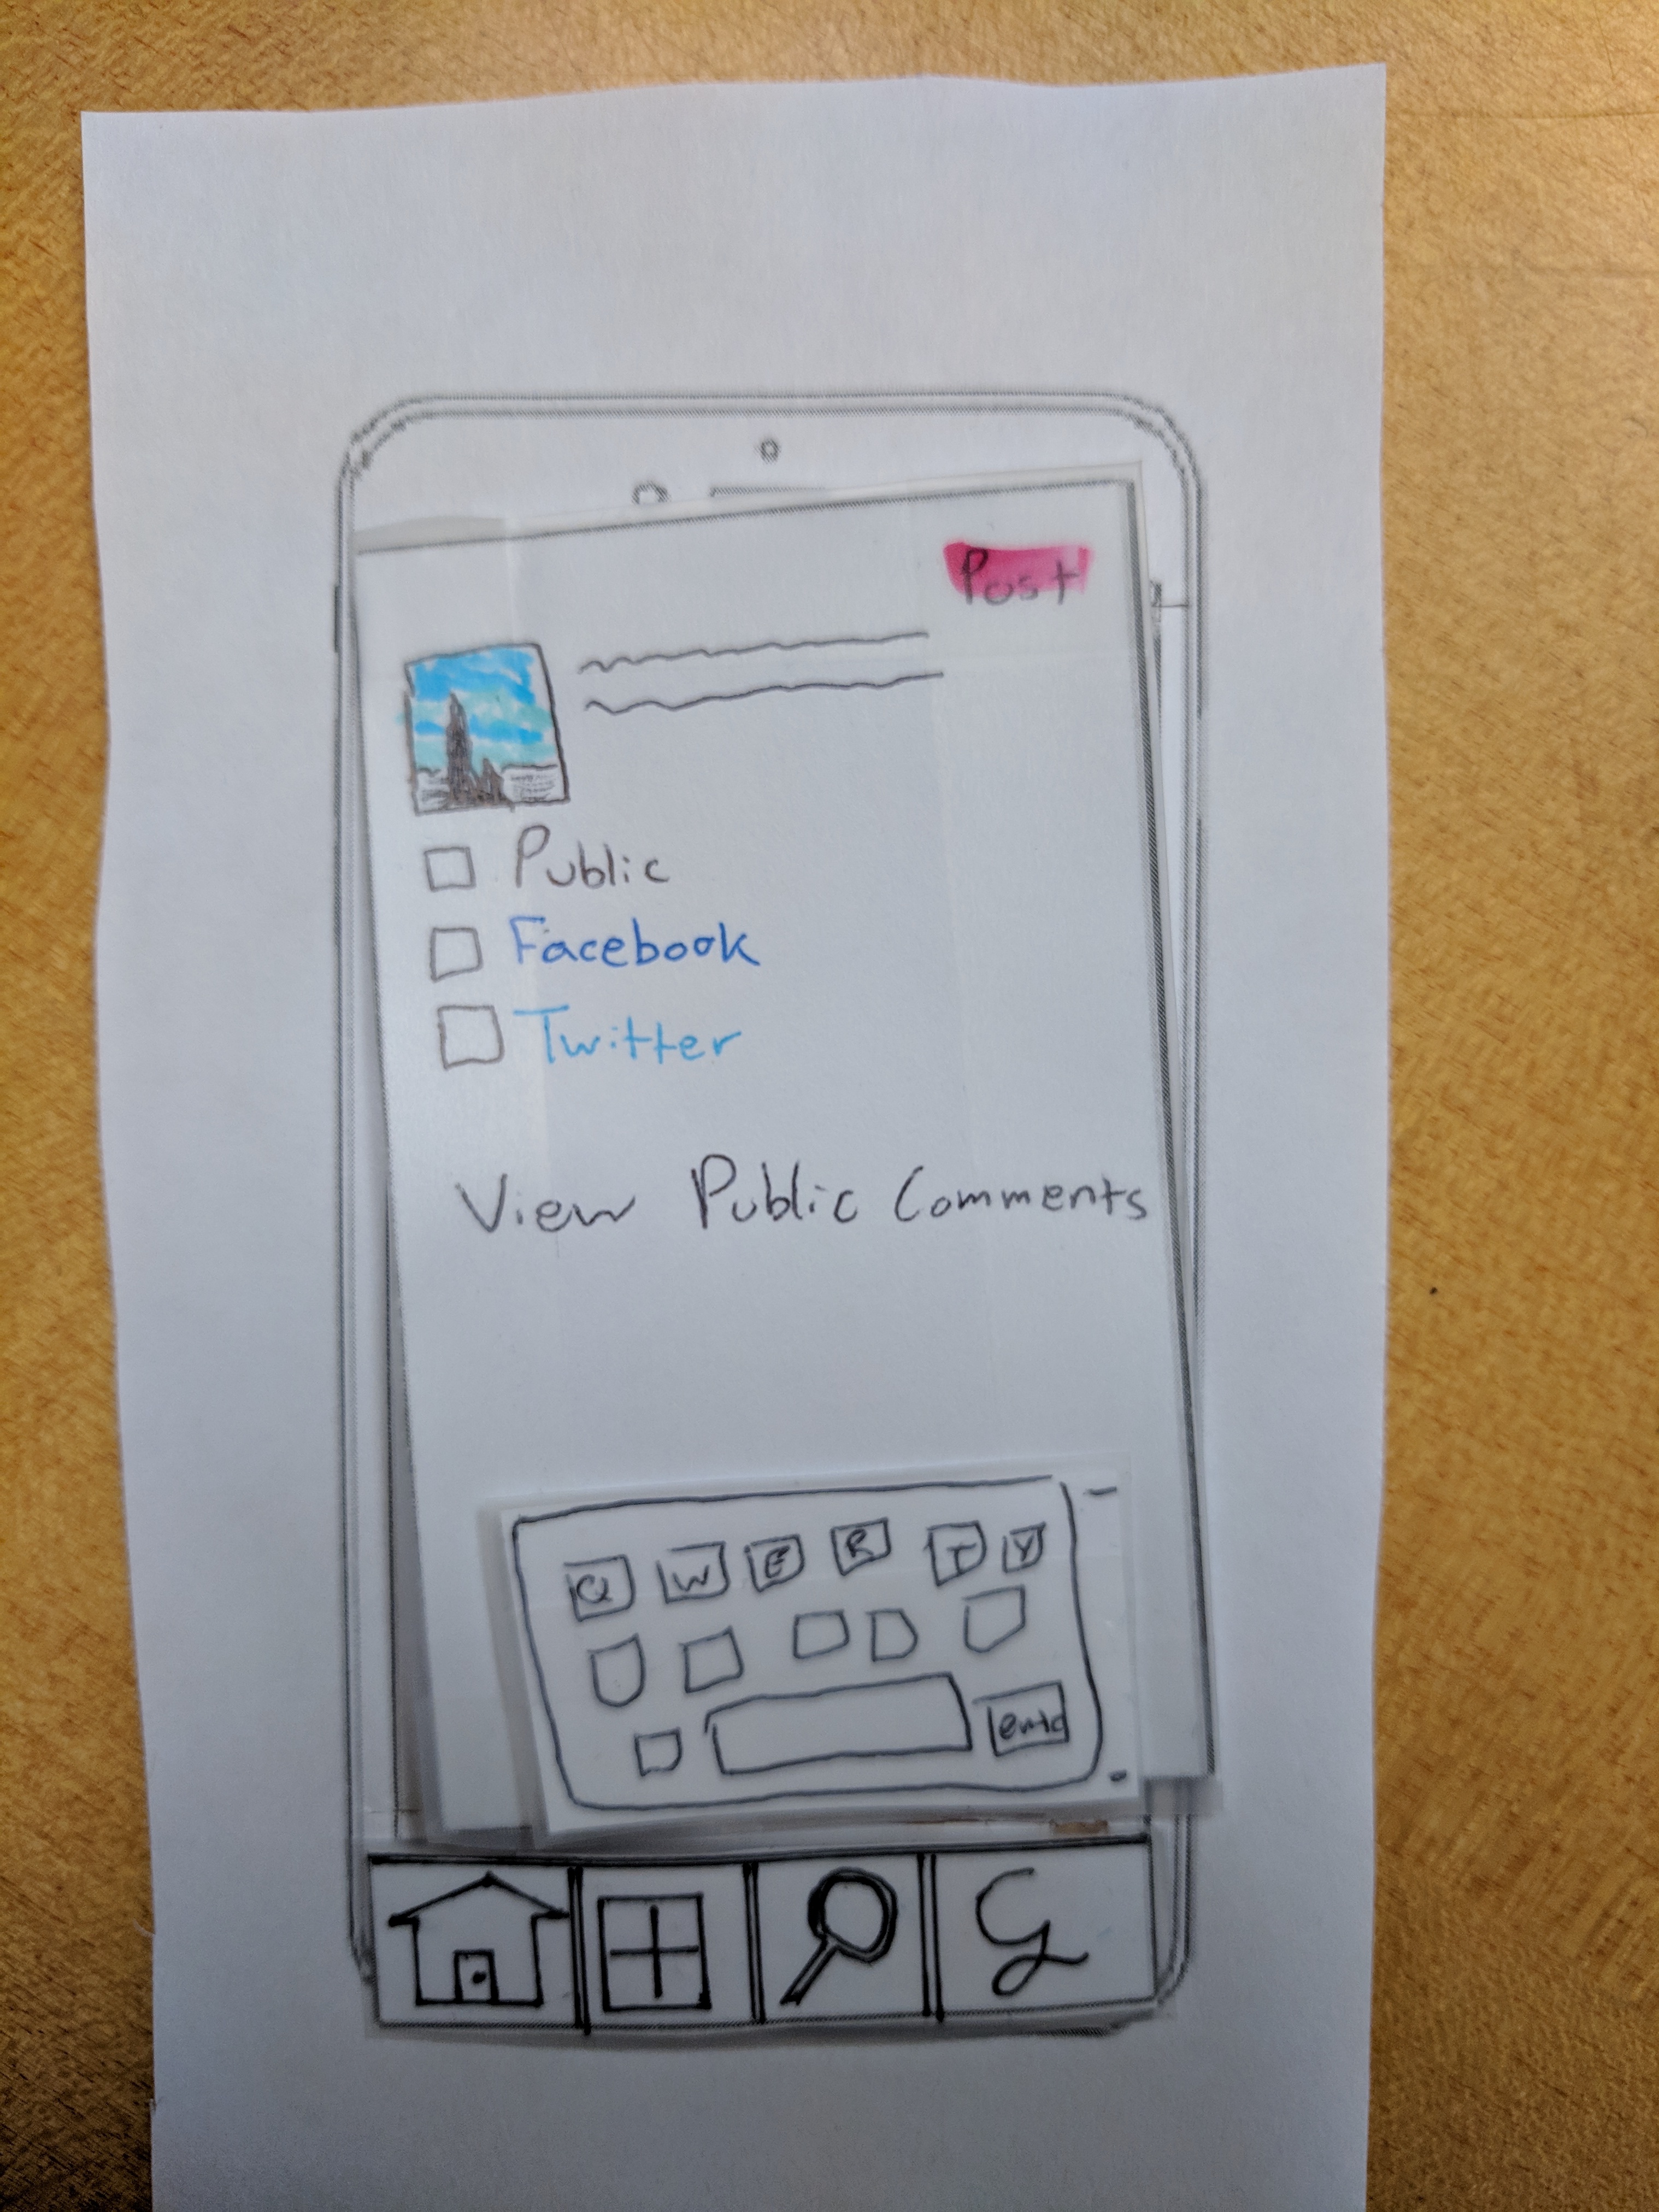 Post
Public
Facebook
Twitter
View Public Comments
Q W E R T Y